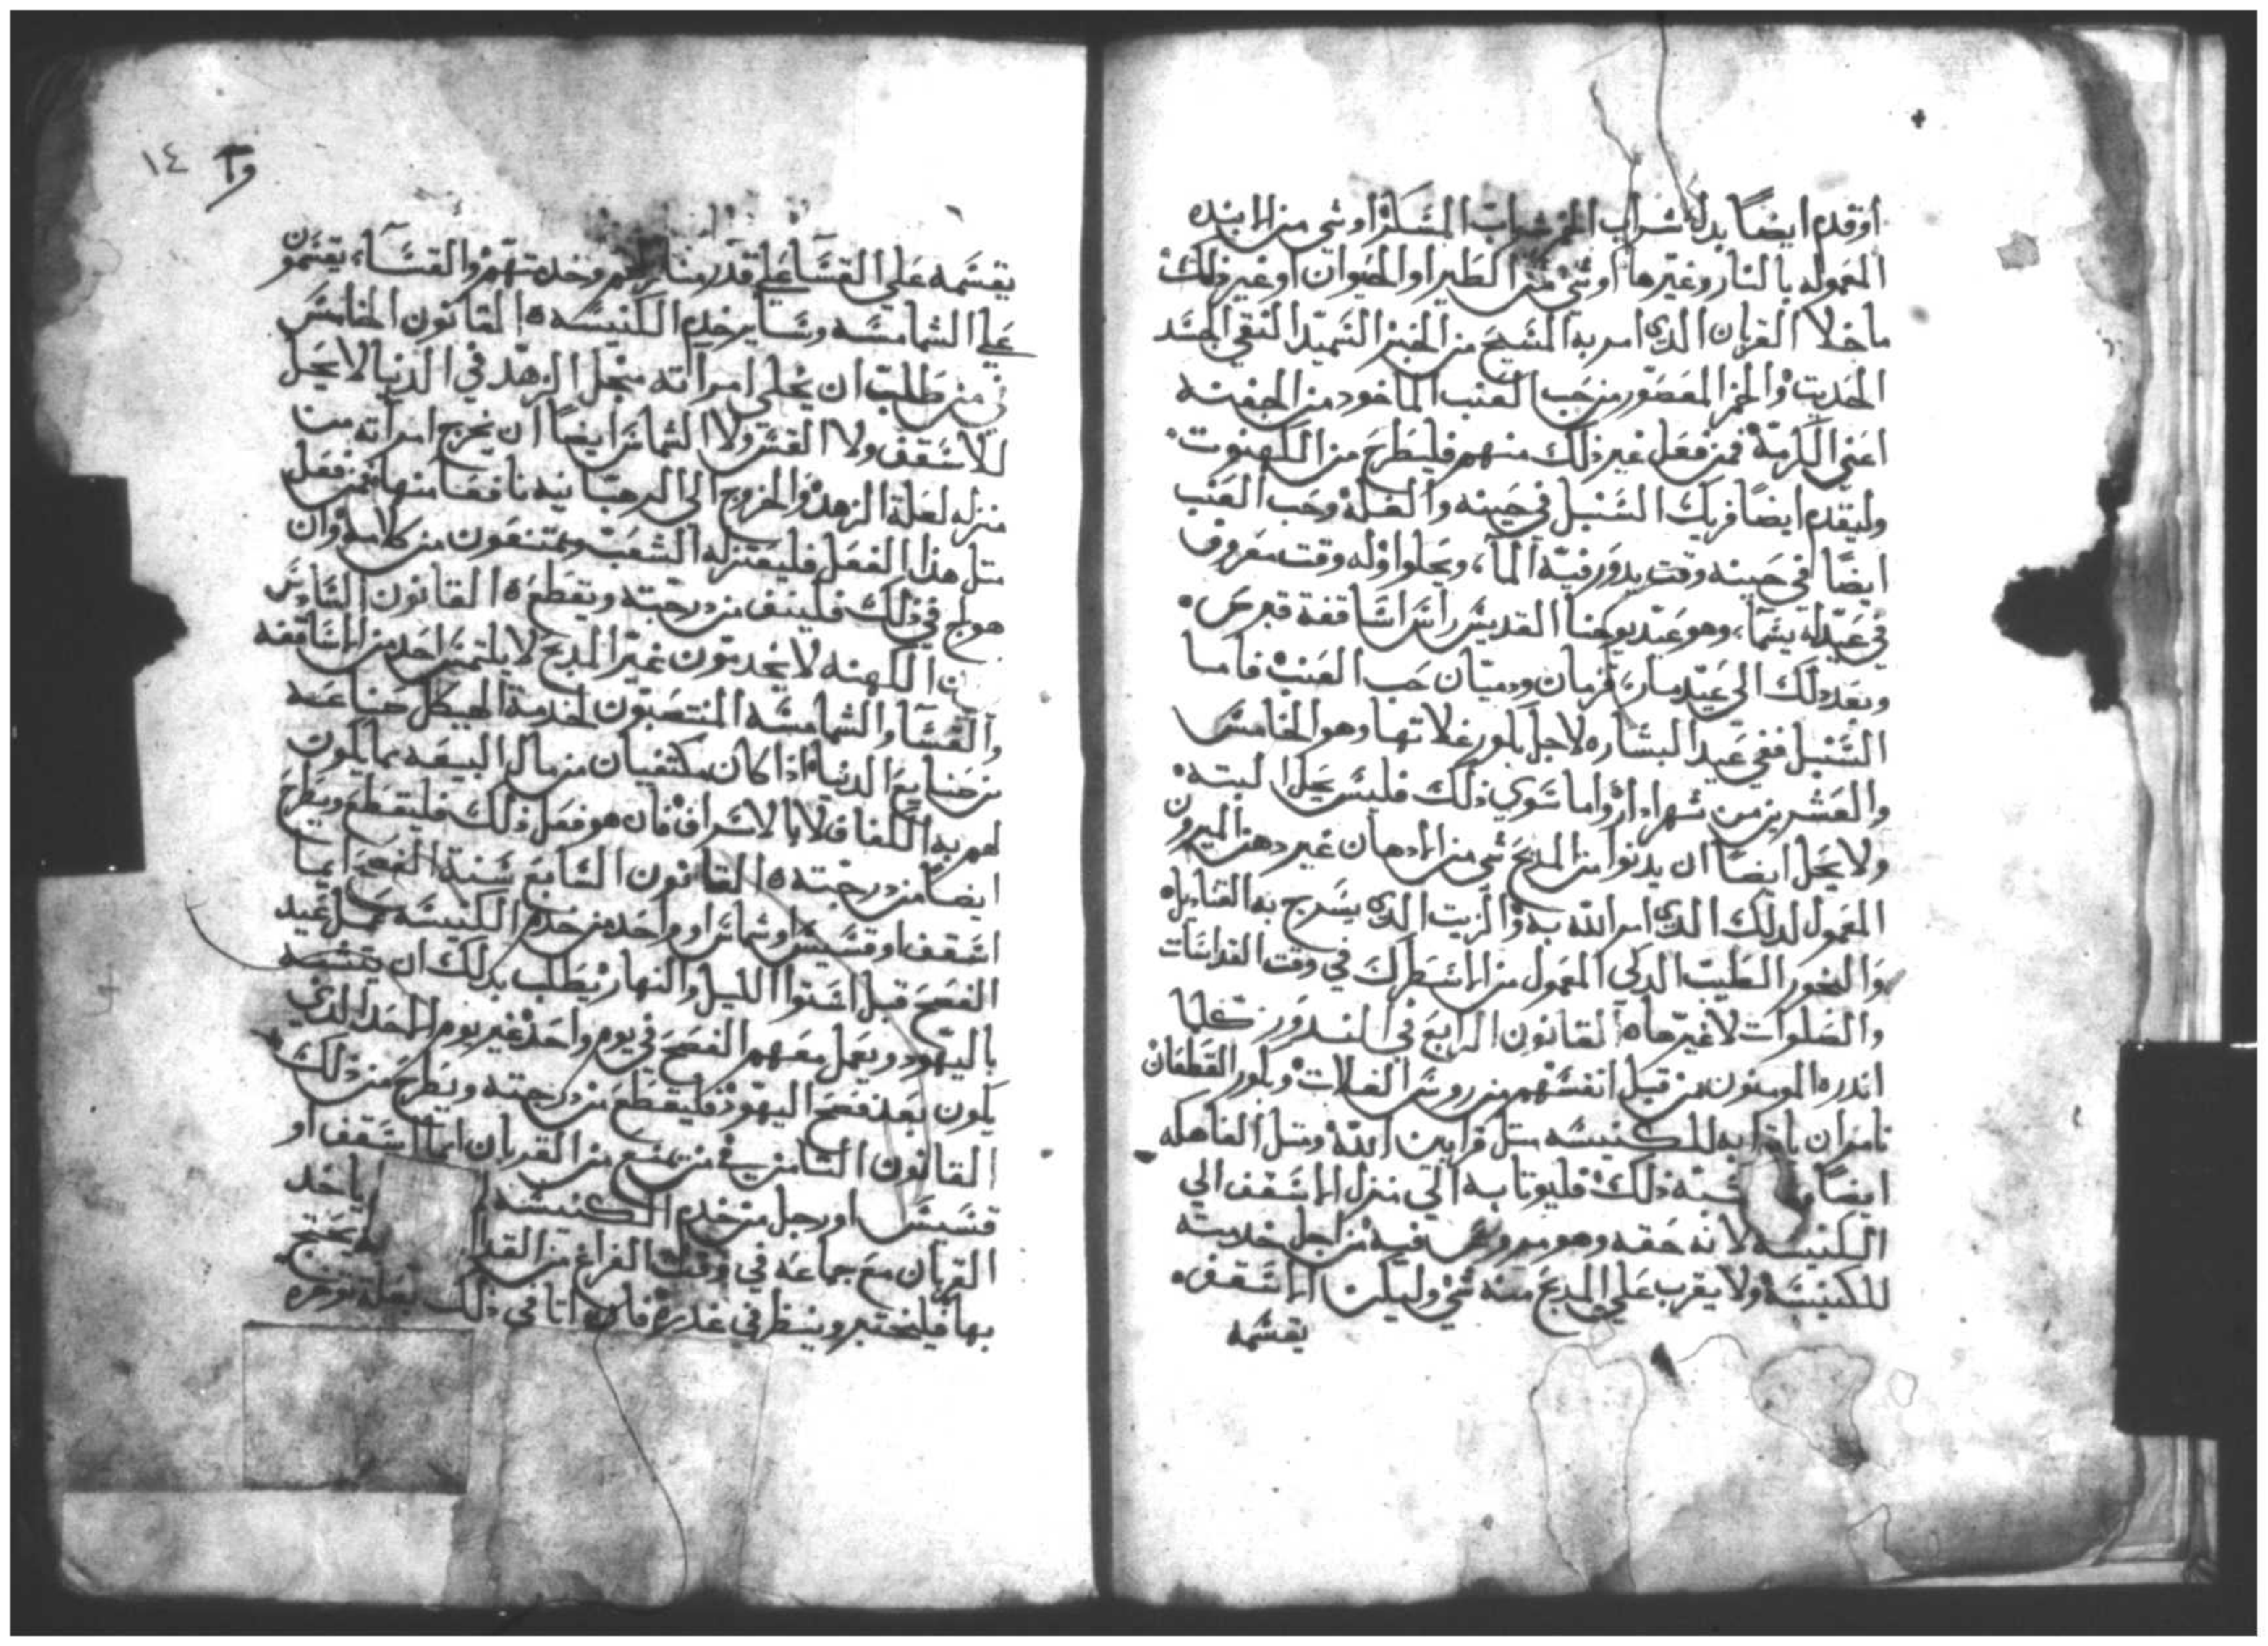 او قدم ايضًا بدل شراب الخمر شراب المسكر او شي من الانبده
المعموله بالنار وغيرها او شي من الطير او الحيوان او غير ذلك
ماخلا القربان الدي امر به المسيح من الخبز السميد النقي الجسد
الحديت والخمر المعصور من حب العنب الماخود من الجفنه
اعني الكرمة فمن فعل غير ذلك منهم فليطرح من الكهنوت
وليقدم ايضا فريك السنبل في حينه والغلة وحب العنب
ايضًا في حينه وقت يدور فيه الماء ويحلوا وله وقت معروف
في عيد له يسما وهو عيد يوحنا القديس راس اساقفة قبرص
وبعد دلك الي عيد مار قزمان ودميان حب العنب فاما
السنبل ففي عيد البشاره لاجل باكور غلاتها وهو الخامس
والعشرين من شهر ادار واما سوي ذلك فليس يحل البته
ولا يحل ايضًا ان يدنوا من المدبح شي من الادهان غير دهن الميرون
المعمول لدلك الدي امر الله به والزيت الدي يسرج به القناديل
والبخور الطيب الدكي المعمول من الاسطرك في وقت القداسات
والصلوات لا غيرها القانون الرابع في الندور كلما
اندره المومنون من قبل انفسهم من روس الغلات وباكور القطفان
نامر ان ياتوا به للكنيسه متل قرابين الله ومتل الفاهكه
ايضًا وما شبه ذلك فليوتا به الي منزل الاسقف الي
الكنيسه لانه حقه وهو مفروض فيه من اجل خدمته
للكنيسة ولا يقرب علي المدبح منه شي وليكن الاسقف
يقسمه
وا ١٤
يقسمه علي القسا علي قدر منازلهم وخدمتهم والقساء يقسمون
علي الشمامسه وساير خدم الكنيسه القانون الخامس
في من طلب ان يخلي امراته منجل الزهد في الدنيا لا يحل
للاسقف ولا القس ولا الشماس ايضًا ان يخرج امراته من
منزله لعلة الزهد والخروج الي الرهبانيه نافقا منها فمن فعل
متل هذا الفعل فليعتزله الشعب ويمتنعون من كلامه وان
هو لج في ذلك فلينف من درجته ويقطع القانون السادس
الكهنه لا يخدمون غير المدبح لا يلتمس احد من الاساقفه
والقسا والشمامسه المنتصبون لخدمة الهيكل صناعه
من صنايع الدنيا اذا كان مكتفيان من مال البيعه بما يكون
لهم به الكفاف لا بالاسراف فان هو فعل ذلك فليقطع ويطرح
ايضًا من درجته القانون السابع سنة الفصح ايما
اسقف او قسيس او شماس او واحد من خدم الكنيسه عمل عيد
الفصح قبل استوا الليل والنهار يطلب بدلك ان يتشبه
باليهود ويعمل معهم الفصح في يوم واحد غير يوم الاحد الدي
يكون بعد فصح اليهود فليقطع من درجته ويطرح من دلك
القانون التامن في من يمتنع من القربان ايما اسقف او
قسيس او رجل من خدم الكنيسه ياخد
القربان مع جماعه في وقت الفراغ من القداس
بها فليختبر وينظر في عدره فان اتا في ذلك بعلة